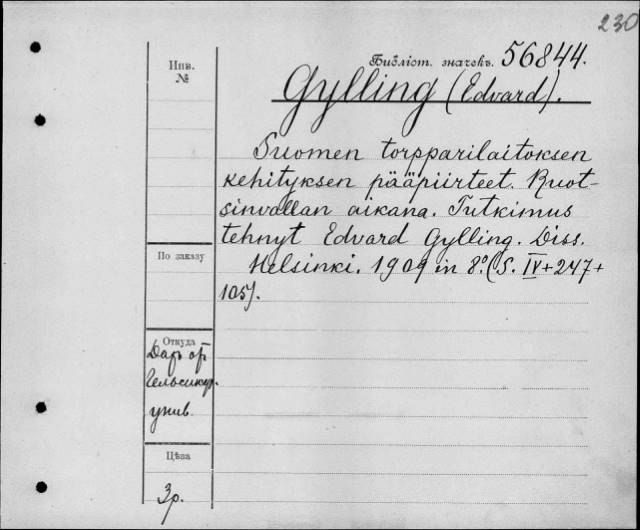 230
Библіот. значекъ. 56844.
Инв.
№
Gylling (Edvard).
Suomen torpparilaitoksen
kehityksen pääpiirteet. Ruot-
sinvallan aikana. Tutkimus
tehnyt Edvard Gylling. Diss.
По заказу
Helsinki. 1909 in 8.º (S. IV+247+
105).
Откуда
Даръ от
Гельсингф.
унив.
Цѣна
3р.